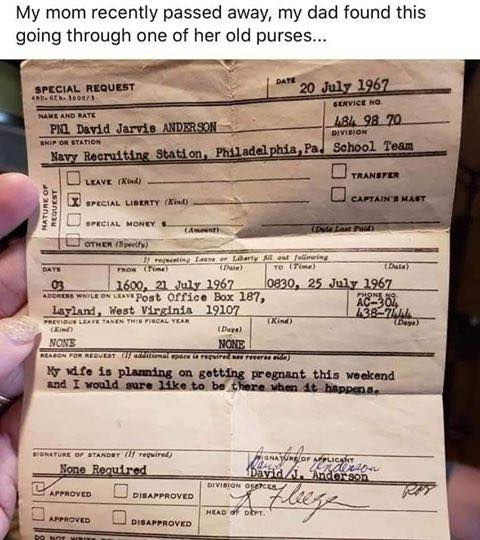 My mom recently passed away, my dad found this
going through one of her old purses...
SPECIAL REQUEST
DATE 20 July 1967
NAME AND RATE
SERVICE NO.
PN1 David Jarvis ANDERSON
484 98 70
SHIP OR STATION
DIVISION
Navy Recruiting Station, Philadelphia, Pa. School Team
NATURE OF REQUEST
LEAVE (Kind)
TRANSFER
X SPECIAL LIBERTY (Kind)
CAPTAIN'S MAST
SPECIAL MONEY $
(Amount) (Date Last Paid)
OTHER (Specify)
If requesting Leave or Liberty fill out following
DAYS FROM (Time) (Date) TO (Time) (Date)
03 1600, 21 July 1967 0830, 25 July 1967
ADDRESS WHILE ON LEAVE Post Office Box 187,
PHONE NO.
AC-304
Layland, West Virginia 19107
438-7444
PREVIOUS LEAVE TAKEN THIS FISCAL YEAR
(Kind) (Days) (Kind) (Days)
NONE NONE
REASON FOR REQUEST (If additional space is required use reverse side)
My wife is planning on getting pregnant this weekend
and I would sure like to be there when it happens.
SIGNATURE OF STANDBY (If required)
SIGNATURE OF APPLICANT
None Required
David J. Anderson
David J. Anderson
DIVISION OFFICER
APPROVED DISAPPROVED
HEAD OF DEPT.
APPROVED DISAPPROVED